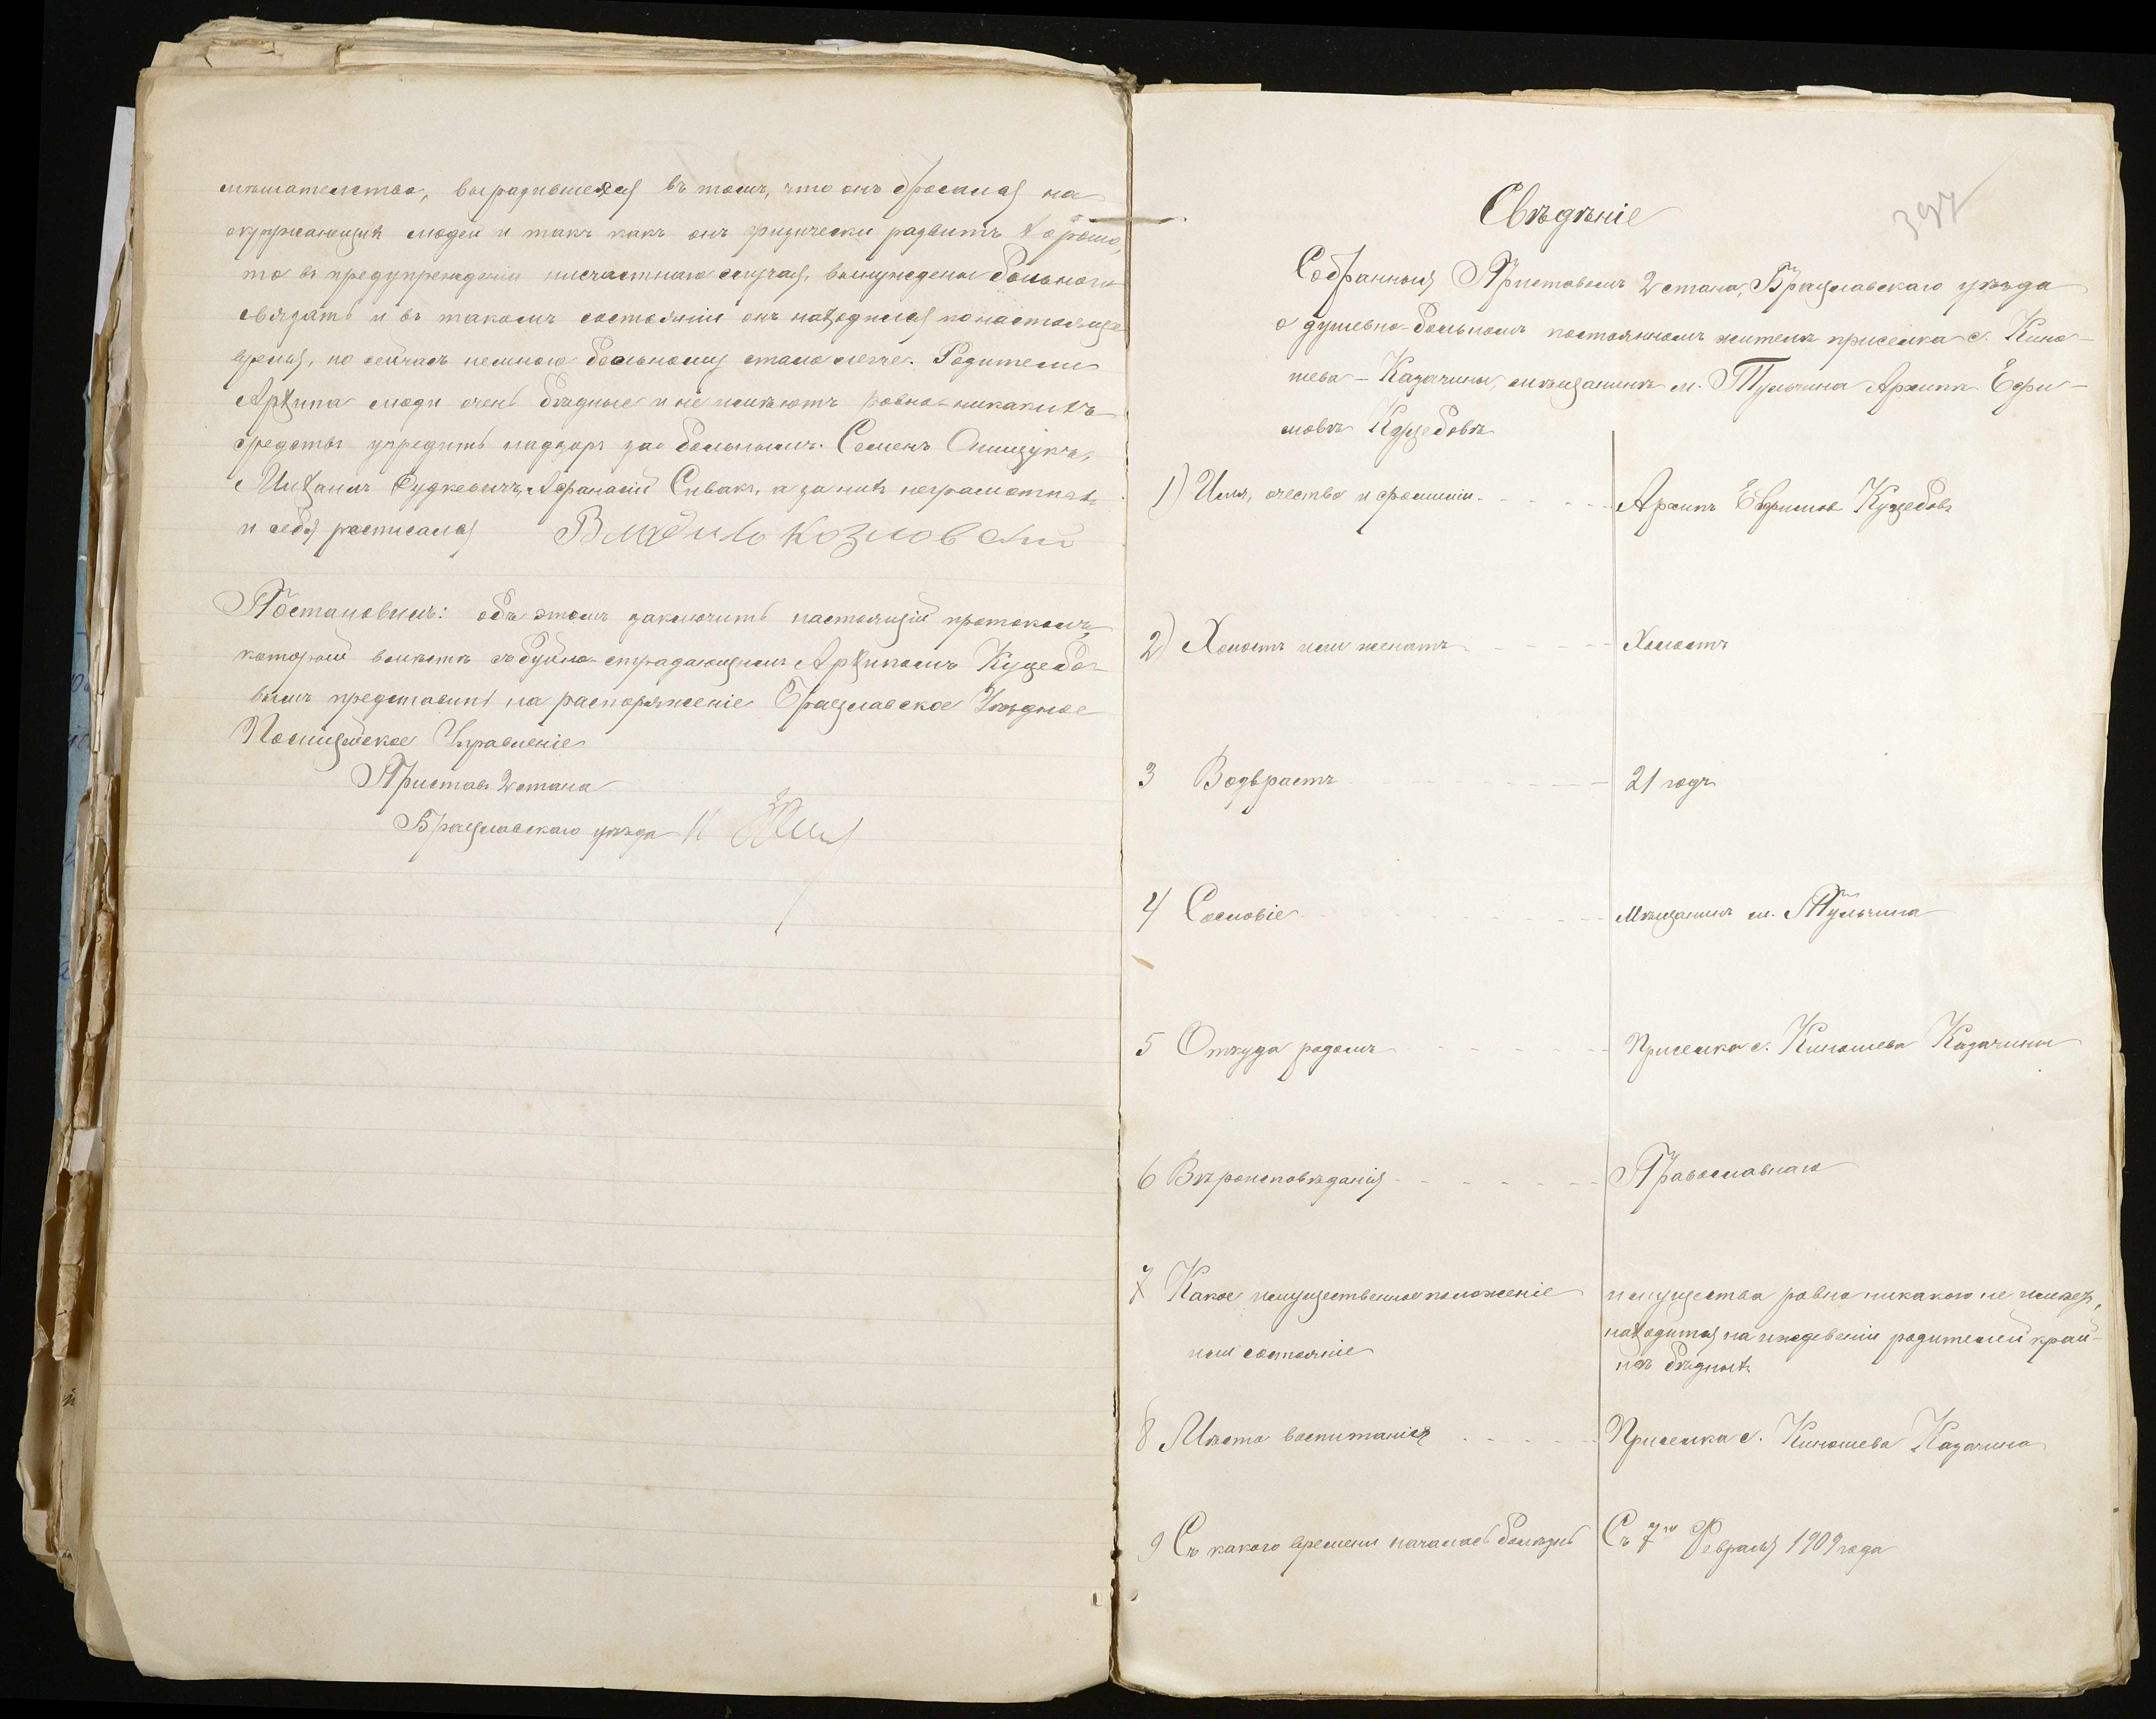 мѣшательства, выразившееся въ томъ, что онъ бросился на
окружающихъ людей и такъ какъ онъ физически развитъ хорошо,
то въ предупрежденіи нисчастнаго случая, вынуждены больного
связать и въ такомъ состояніи онъ находился по настоящее
время, но сейчасъ немного больному стало легче. Родители
Архипа люди очень бѣдные и не имѣютъ ровно никакихъ
средствъ учредить надзоръ за больнымъ. Семенъ Онищукъ,
Михаилъ Рудкевичъ, Афанасій Сивакъ, а за нихъ неграмотныхъ
и себя росписался Козловскій
Постановилъ: объ этомъ заключить настоящій протоколъ,
который вмѣстѣ съ буйно-страдающимъ Архипомъ Куцебо-
вымъ представить на распоряженіе Брацлавское Уѣздное
Полицейское Управленіе
Приставъ 2 стана
Брацлавскаго уѣзда
397
Свѣдѣніе
Собранныя Приставомъ 2 стана, Брацлавскаго уѣзда
о душевно-больномъ постоянномъ жителѣ приселка с. Кина-
шева - Казачины, мѣщанинѣ м. Тульчина Архипѣ Ефи-
мовѣ Куцебовѣ
1) Имя, очество и фамилія Архипъ Евфимовъ Куцебовъ
2) Холостъ или женатъ Холостъ
3 Возврастъ 21 годъ
4 Сословіе Мѣщанинъ м. Тульчина
5 Откуда родомъ Приселка с. Кинашева Казачины
6 Вѣроисповѣданія Православнаго
7 Какое имущественное положеніе имущества ровно никакого не имѣетъ,
или состояніе находится на иждевеніи родителей край-
нѣ бѣдныхъ
8 Мѣсто воспитанія Приселка с. Кинашева Казачина
9 Съ какого времени началась болѣзнь Съ 7го Февраля 1909 года